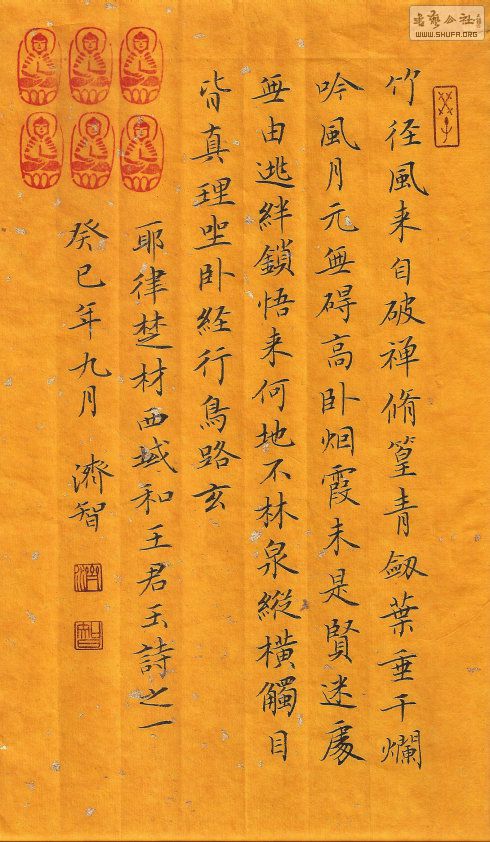 書藝公社
WWW.SHUFA.ORG
竹径風来自破禅脩篁青劔葉垂千爛
吟風月元無碍高卧烟霞未是賢迷處
無由逃絆鎖悟来何地不林泉縱橫觸目
皆真理坐卧経行鳥路玄
耶律楚材西域和王君玉詩之一
癸巳年九月 濟智